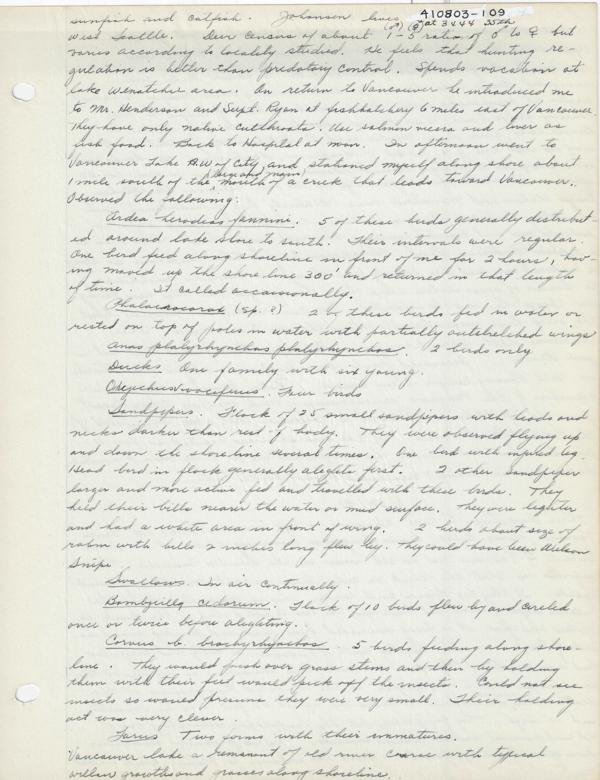 410803-109
sunfish and catfish. Johansen lives at 3444 35th
West Seattle. Deer census of about (♂) 1-5 (♀) ratio of ♂ to ♀ but
varies according to locality studied. He feels that hunting re-
gulation is better than predatory control. Spends vacation at
Lake Wenatchee area. On return to Vancouver he introduced me
to Mr. Henderson and Supt. Ryan at fish hatchery 6 miles east of Vancouver.
They have only native cutthroats. Use salmon viscera and liver as
fish food. Back to Hospital at noon. In afternoon went to
Vancouver Lake N.W. of City, and stationed myself along shore about
1 mile south of the (large and main) mouth of a creek that leads toward Vancouver.
Observed the following:
Ardea herodias fannini. 5 of these birds generally distribut-
ed around lake shore to south. Their intervals were regular.
One bird fed along shoreline in front of me for 2 hours, hav-
ing moved up the shore line 300' and returned in that length
of time. It called occasionally.
Phalacrocorax (sp. ?) 2 of these birds fed in water or
rested on top of poles in water with partially outstretched wings
Anas platyrhynchos platyrhynchos. 2 birds only
Ducks. One family with six young.
Oxyechus vociferus. Four birds
Sandpipers. Flock of 25 small sandpipers with heads and
necks darker than rest of body. They were observed flying up
and down the shoreline several times. One bird with injured leg.
Head bird in flock generally alights first. 2 other sandpipers
larger and more active fed and travelled with these birds. They
held their bills nearer the water or mud surface. They were lighter
and had a white area in front of wing. 2 birds about size of
robin with bills 2 inches long flew by. They could have been Wilson
Snipe
Swallows. In air continually.
Bombycilla cedorum. Flock of 10 birds flew by and circled
once or twice before alighting.
Corvus b. brachyrhynchos. 5 birds feeding along shore-
line. They would push over grass stems and then by holding
them with their feet would pick off the insects. Could not see
insects so would presume they were very small. Their holding
act was very clever.
Larus Two forms with their immatures.
Vancouver Lake a remanant of old river course with typical
willow growths and grasses along shoreline.